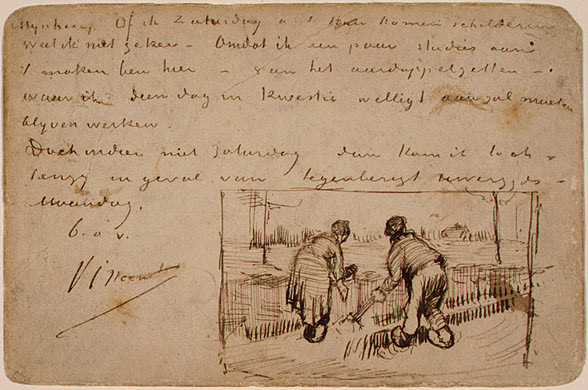 Mynheer, Of ik Zaturdag a s kan komen schilderen
weet ik niet zeker – Omdat ik een paar studies aan
't maken ben hier – van het aardappelzetten –
waar ik dien dag in kwestie welligt aan zal moeten
blyven werken.
Doch indien niet Zaturdag dan kom ik toch
tenzy in geval van tegenberigt Uwerzyds –
Maandag.
b. a. v.
Vincent